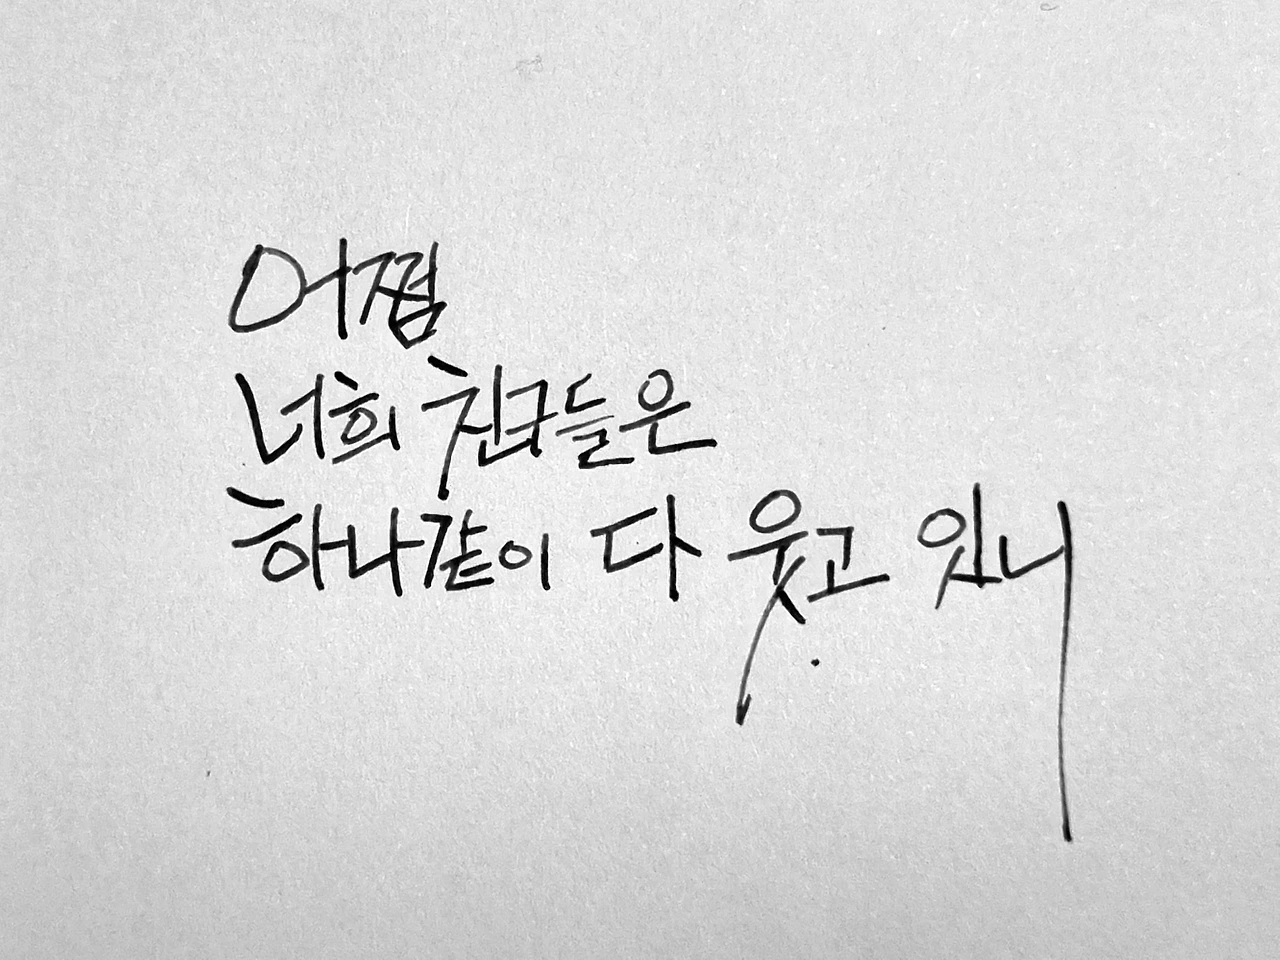 어쩜
너희 친구들은
하나같이 다 웃고 있니